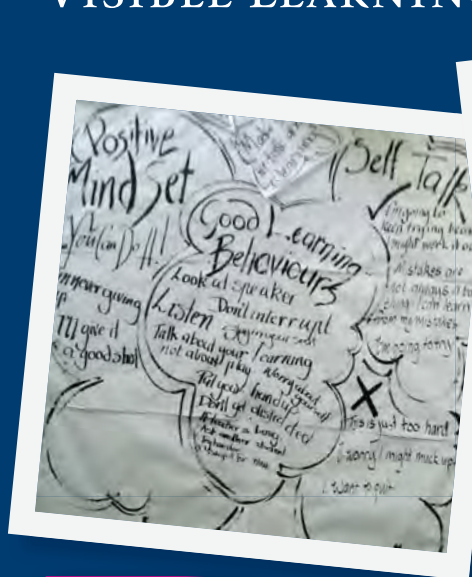 VISIBLE LEARNIN
Positive
Mind Set
You Can Do It!
I'm never giving
up
I'll give it
a good shot
Good Learning
Behaviours
Look at speaker
Don't interrupt
Listen
Stay in your seat
Talk about your learning
not about play
Worry about yourself
Put your hand up
Don't get distracted
If teacher is busy
Ask another student
Self Talk
I'm going to
keep trying
I might work it out
Mistakes are
not always a bad
thing I can learn
from my mistakes
I'm going to try
This is just too hard
I worry I might muck up
I want to quit